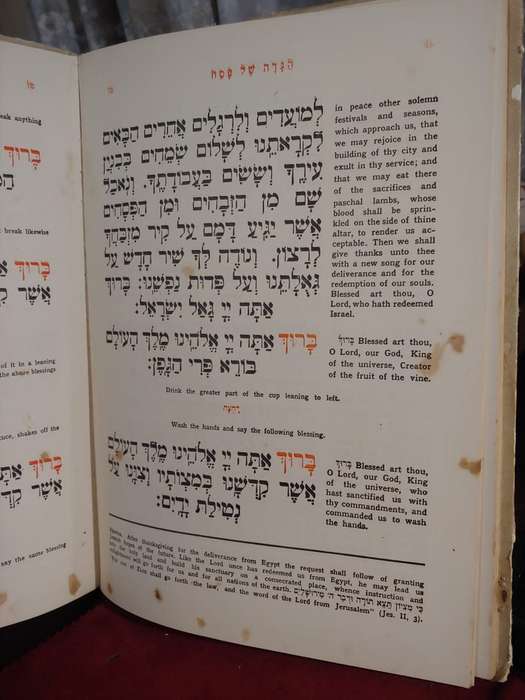 הַגָּדָה שֶׁל פֶּסַח
לְמוֹעֲדִים וְלִרְגָלִים אֲחֵרִים הַבָּאִים
לִקְרָאתֵנוּ לְשָׁלוֹם שְׂמֵחִים בְּבִנְיַן
עִירֶךָ וְשָׂשִׂים בַּעֲבוֹדָתֶךָ. וְנֹאכַל
שָׁם מִן הַזְּבָחִים וּמִן הַפְּסָחִים
אֲשֶׁר יַגִּיעַ דָּמָם עַל קִיר מִזְבַּחֲךָ
לְרָצוֹן. וְנוֹדֶה לְּךָ שִׁיר חָדָשׁ עַל
גְּאֻלָּתֵנוּ וְעַל פְּדוּת נַפְשֵׁנוּ: בָּרוּךְ
אַתָּה יְיָ גָּאַל יִשְׂרָאֵל:
in peace other solemn
festivals and seasons,
which approach us, that
we may rejoice in the
building of thy city and
exult in thy service; and
that we may eat there
of the sacrifices and
paschal lambs, whose
blood shall be sprin-
kled on the side of thine
altar, to render us ac-
ceptable. Then we shall
give thanks unto thee
with a new song for our
deliverance and for the
redemption of our souls.
Blessed art thou, O
Lord, who hath redeemed
Israel.
בָּרוּךְ אַתָּה יְיָ אֱלֹהֵינוּ מֶלֶךְ הָעוֹלָם
בּוֹרֵא פְּרִי הַגָּפֶן:
בָּרוּךְ Blessed art thou,
O Lord, our God, King
of the universe, Creator
of the fruit of the vine.
Drink the greater part of the cup leaning to left.
רָחְצָה
Wash the hands and say the following blessing.
בָּרוּךְ אַתָּה יְיָ אֱלֹהֵינוּ מֶלֶךְ הָעוֹלָם
אֲשֶׁר קִדְּשָׁנוּ בְּמִצְוֹתָיו וְצִוָּנוּ עַל
נְטִילַת יָדָיִם:
בָּרוּךְ Blessed art thou,
O Lord, our God, King
of the universe, who
hast sanctified us with
thy commandments, and
commanded us to wash
the hands.
After thanksgiving for the deliverance from Egypt the request shall follow of granting
hopes of the future. Like the Lord once has redeemed us from Egypt, he may lead us
the holy land and build his sanctuary on a consecrated place, whence instruction and
enlightment will go forth for us and for all nations of the earth. כִּי מִצִּיּוֹן תֵּצֵא תוֹרָה וּדְבַר ה׳ מִירוּשָׁלַיִם
out of Zion shall go forth the law, and the word of the Lord from Jerusalem" (Jes. II, 3).
eak anything
בָּרוּךְ
break likewise
בָּרוּךְ
אֲשֶׁר
of it in a leaning
the above blessings
uce, shakes off the
בָּרוּךְ אַתָּה
אֲשֶׁר
say the same blessing